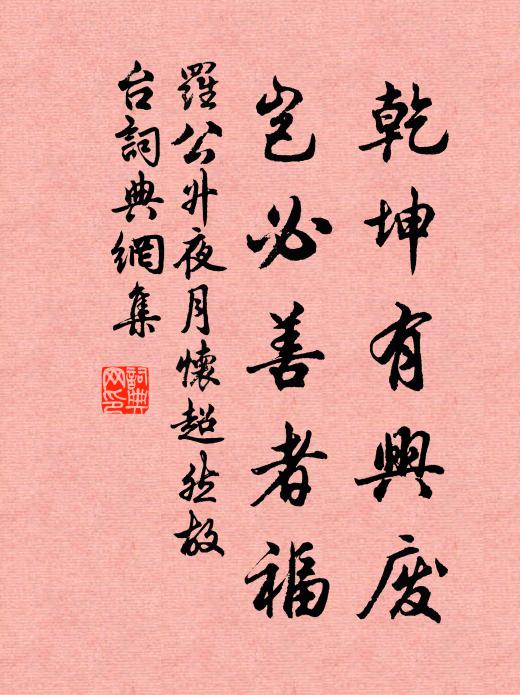 乾坤有興廢
豈必善者福
羅公升夜月懷超然故
台詞典網集
詞典网印